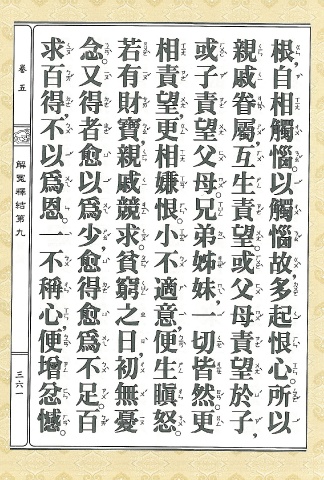 根，自相觸惱。以觸惱故，多起恨心。所以
親戚眷屬，互生責望。或父母責望於子，
或子責望父母。兄弟姊妹，一切皆然。更
相責望，更相嫌恨。小不適意，便生瞋怒。
若有財寶，親戚競求。貧窮之日，初無憂
念。又得者愈以為少，愈得愈為不足。百
求百得，不以為恩。一不稱心，便增忿憾。
卷五
解冤釋結第九
三六一